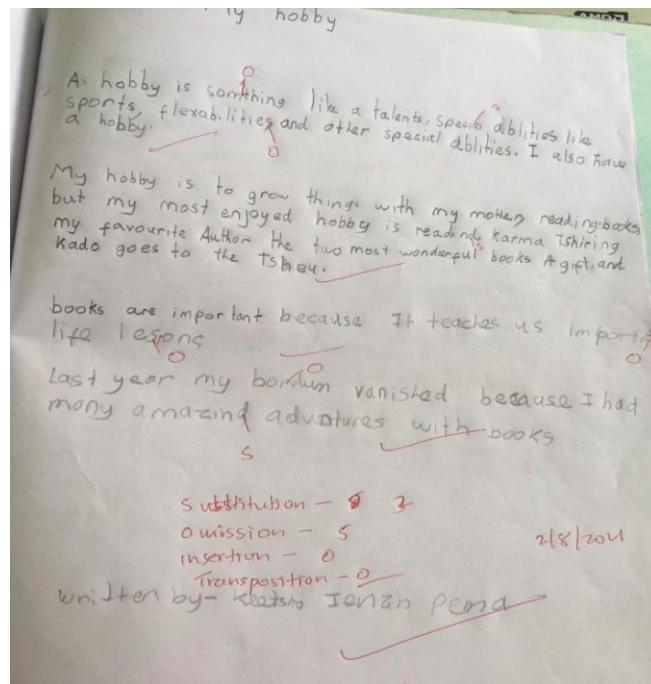 My hobby
As hobby is somthing like a talents, special ablities like
sports, flexabilities and other special ablities. I also have
a hobby.
My hobby is to grow things with my mother, reading books
but my most enjoyed hobby is reading Karma Tshiring
my favourite Author the two most wonderful books A gift, and
Kado goes to the
books are important because It teaches us
life lesons
Last year my bordum vanished because I had
many amazind advntures with books
S
substitution - 3
omission - 5
insertion - 0
Transposition - 0
2/8/2021
written by- Pema